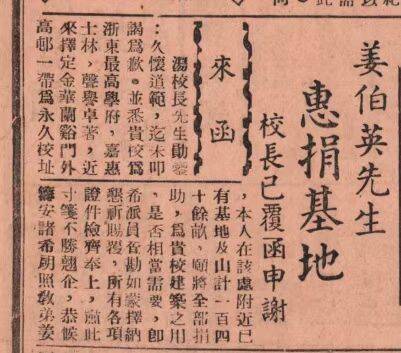 姜伯英先生
惠捐基地
校長已覆函申謝
來函
湯校長先生勛鑒
:久懷道範,迄未叩
謁爲歉。並悉貴校爲
浙東最高學府,嘉惠
士林,聲譽卓著,近
來擇定金華蘭谿門外
高邨一帶爲永久校址
,本人在該處附近已
有基地及山計一百四
十餘畝,願將全部捐
助,爲貴校建築之用
,是否相當需要,卽
希派員省勘如蒙擇納
懇祈賜覆,所有各項
證件檢齊奉上,耑此
寸箋不勝翹企,恭候
籌安諸希朗照敎弟姜